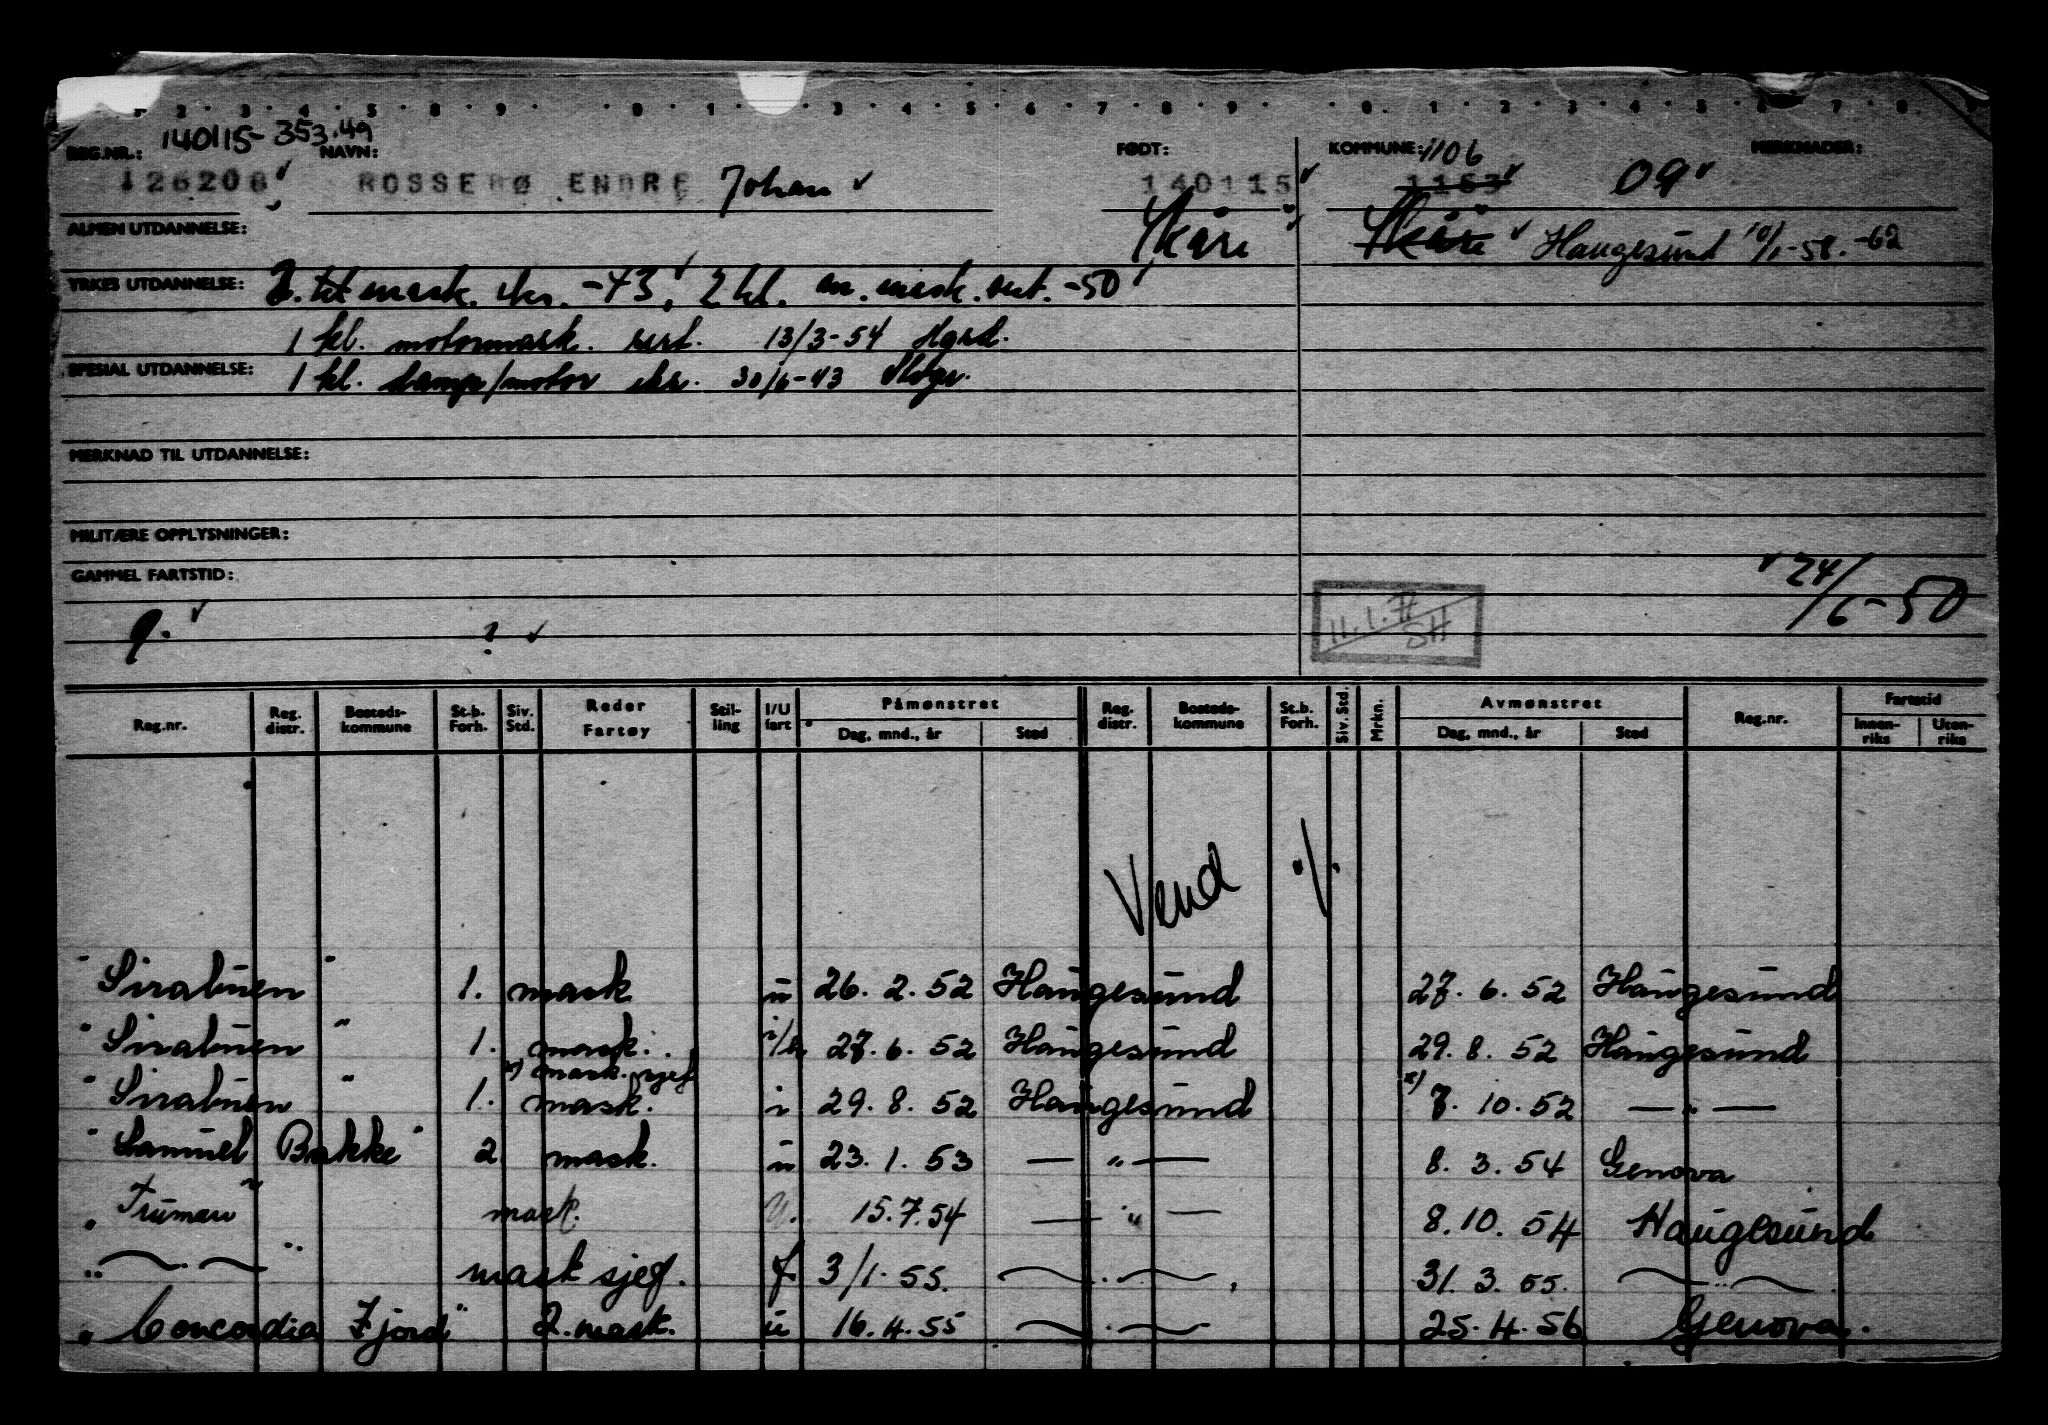 1 · 2 · 3 · 4 · 5 · 8 · 9 · 0 · 1 · 3 · 4 · 5 · 6 · 7 · 8 · 9 · 0 · 1 · 2 · 3 · 4 · 5 · 6 · 7 · 8 · 9
140115-353.49
REG.NR.: NAVN: FØDT: KOMMUNE: 1106 MERKNADER:
126206 ROSSEBØ ENDRE Johan 140115 1153 09
ALMEN UTDANNELSE: Skåre Skåre Haugesund 10/1-58. -62
YRKES UTDANNELSE: 2. mask. eks. -43, 2 kl. mask. sert. -50
1 kl. motormask. sert. 13/3-54 Hgsd.
SPESIAL UTDANNELSE: 1 kl. damp/motor eks. 30/6-43
MERKNAD TIL UTDANNELSE:
MILITÆRE OPPLYSNINGER:
GAMMEL FARTSTID: 24/6-50
9. ?
11.1.71 SH
Reg.nr. Reg. distr. Bosteds-kommune St.b. Forh. Siv. Std. Reder Fartøy Stil-ling I/U fart Påmønstret Dag, mnd., år Sted Reg. distr. Bosteds-kommune St.b. Forh. Siv. Std. Mrkn. Avmønstret Dag, mnd., år Sted Reg.nr. Fartstid Innen-riks Uten-riks
Vend ./.
" Sirabuen " 1. mask u 26. 2. 52 Haugesund 27. 6. 52 Haugesund
" Sirabuen " 1. mask. i/u 27. 6. 52 Haugesund 29. 8. 52 Haugesund
x) mask. sjef
" Sirabuen " 1. mask. i 29. 8. 52 Haugesund x) 7. 10. 52 — " —
" Samuel Bakke " 2 mask. u 23. 1. 53 — " — 8. 3. 54 Genova
" Truman " mask. u. 15.7.54 — " — 8. 10. 54 Haugesund
" — " — " mask sjef. f 3/1. 55. — " — 31. 3. 55. — " —
" Concordia Fjord " 2. mask. u 16. 4. 55 — " — 25. 4. 56 Genova.